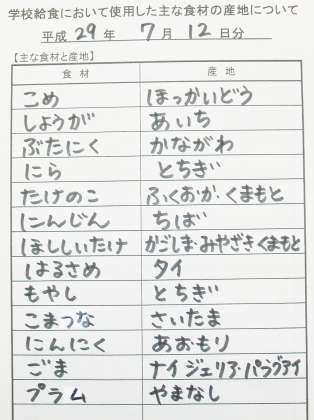 学校給食において使用した主な食材の産地について
平成 29 年 7 月 12 日分
【主な食材と産地】
食材 産地
こめ ほっかいどう
しょうが あいち
ぶたにく かながわ
にら とちぎ
たけのこ ふくおか・くまもと
にんじん ちば
ほししいたけ かごしま・みやざきくまもと
はるさめ タイ
もやし とちぎ
こまつな さいたま
にんにく あおもり
ごま ナイジェリア・パラグアイ
プラム やまなし